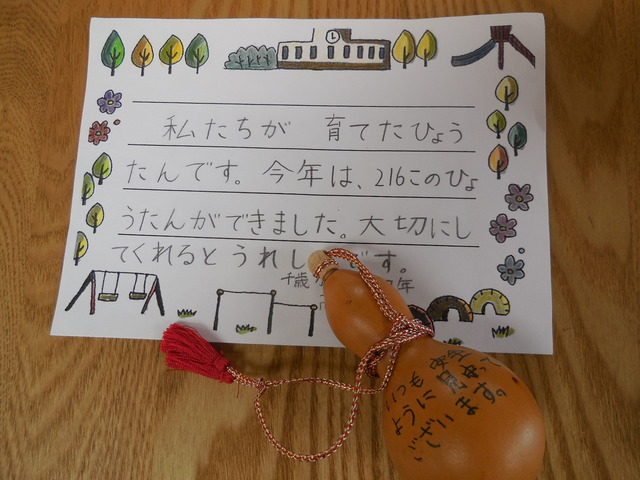 私たちが 育てたひょう
たんです。今年は、216このひょ
うたんができました。大切にし
てくれるとうれし です。
千歳 年
いつも 安全
ように 見守って
ございます。